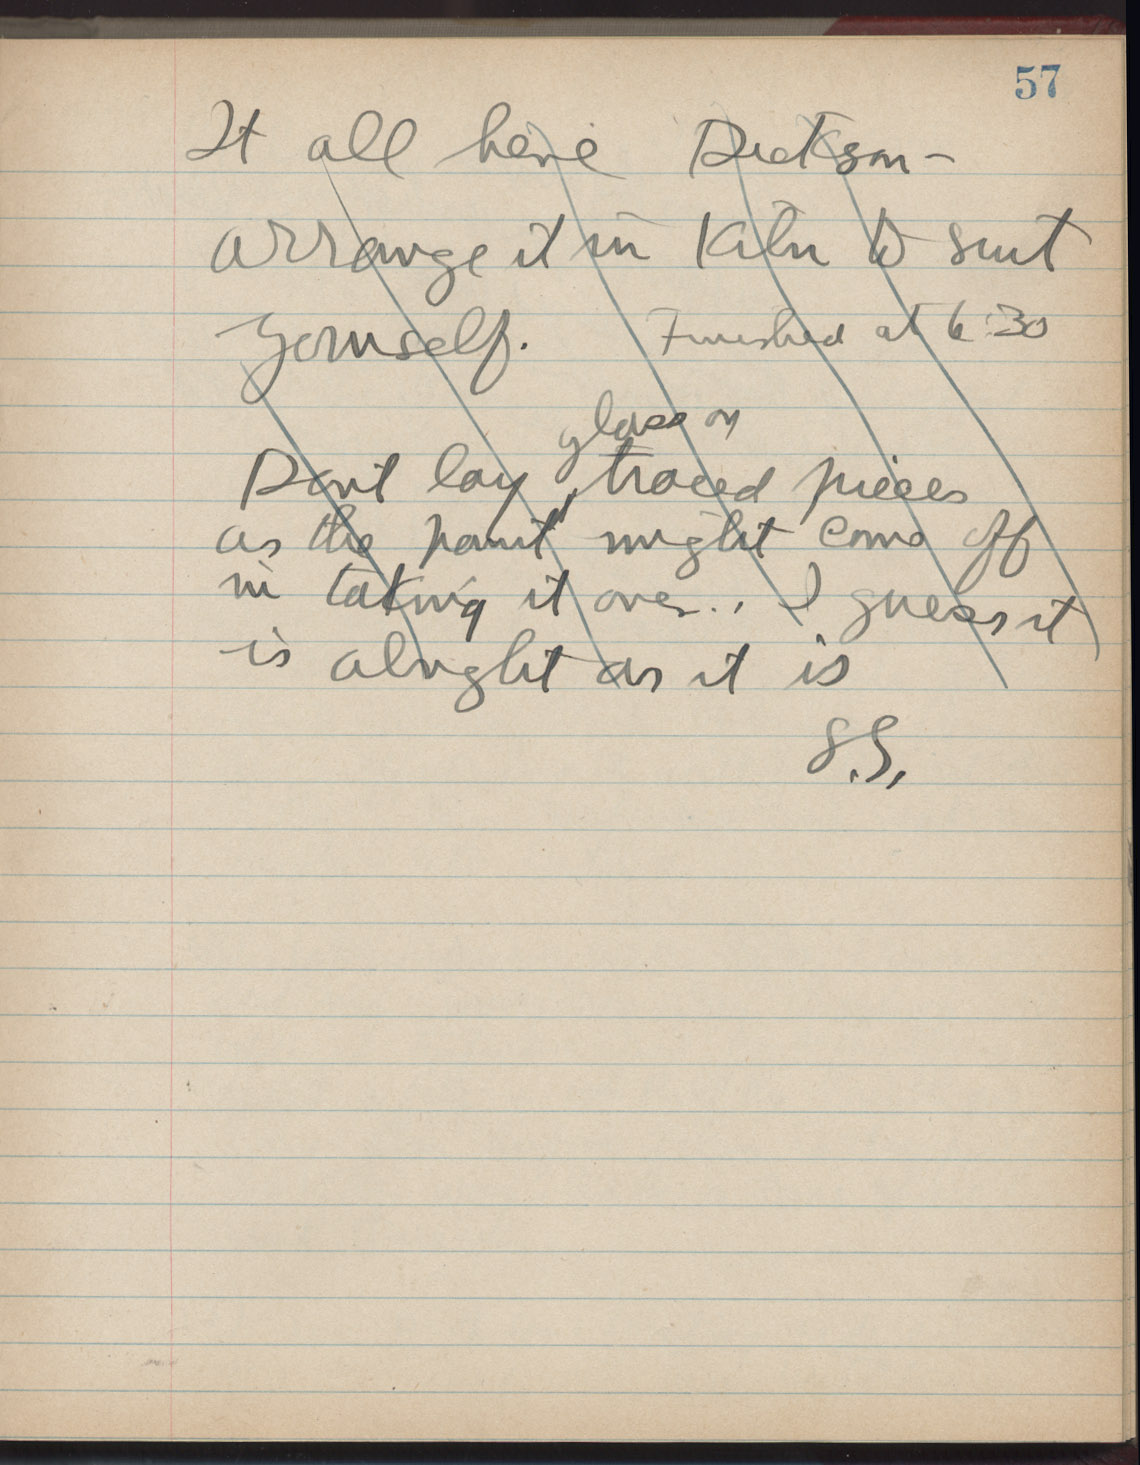 57
It all here Dickson -
arrange it in Kiln to suit
yourself. Finished at 6:30
glass on
Don't lay traced pieces
as the paint might come off
in taking it over.. I guess it
is alright as it is
S.S.